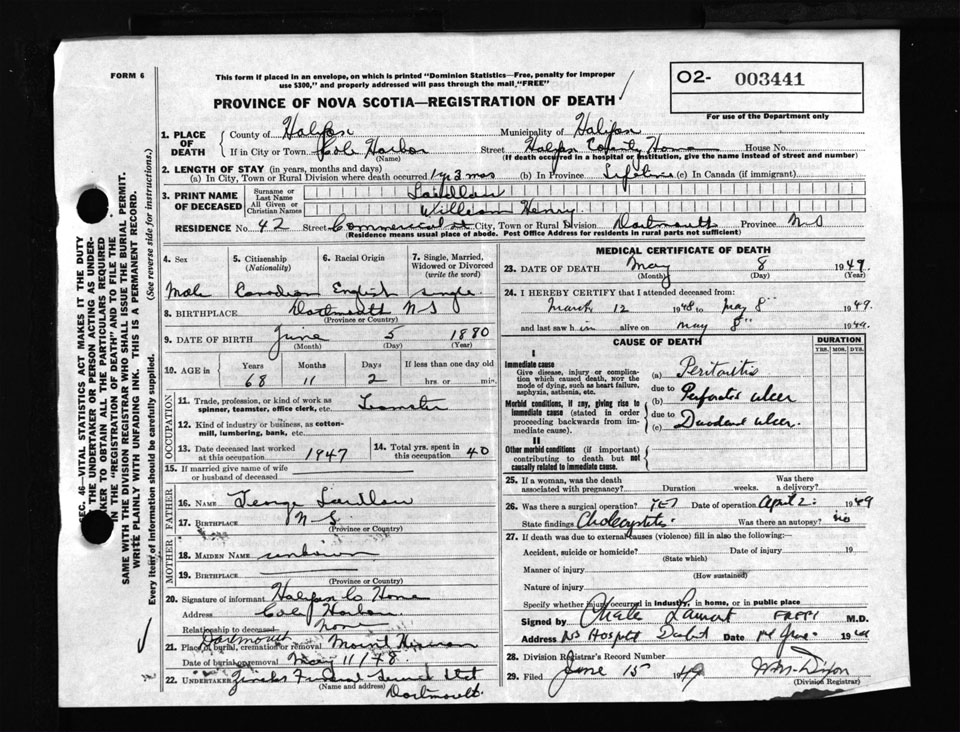 FORM 6
This form if placed in an envelope, on which is printed "Dominion Statistics—Free, penalty for improper
use $300," and properly addressed will pass through the mail "FREE"
O2- 003441
For use of the Department only
PROVINCE OF NOVA SCOTIA—REGISTRATION OF DEATH
SEC. 46—VITAL STATISTICS ACT MAKES IT THE DUTY
THE UNDERTAKER OR PERSON ACTING AS UNDER-
TAKER TO OBTAIN ALL THE PARTICULARS REQUIRED
IN THE "REGISTRATION OF DEATH" AND TO FILE THE
SAME WITH THE DIVISION REGISTRAR WHO SHALL ISSUE THE BURIAL PERMIT.
WRITE PLAINLY WITH UNFADING INK. THIS IS A PERMANENT RECORD.
Every item of information should be carefully supplied. (See reverse side for instructions.)
1. PLACE OF DEATH
County of Halifax Municipality of Halifax
If in City or Town Cole Harbor Street Halifax County Home House No.
(Name) (If death occurred in a hospital or institution, give the name instead of street and number)
2. LENGTH OF STAY (in years, months and days)
(a) In City, Town or Rural Division where death occurred 1 y 3 mos (b) In Province Lifetime (c) In Canada (if immigrant)
3. PRINT NAME OF DECEASED
Surname or Last Name Laidlaw
All Given or Christian Names William Henry
RESIDENCE No. 42 Street Commercial St City, Town or Rural Division Dartmouth Province N-S
(Residence means usual place of abode. Post Office Address for residents in rural parts not sufficient)
4. Sex
5. Citizenship (Nationality)
6. Racial Origin
7. Single, Married, Widowed or Divorced (write the word)
Male Canadian English single
8. BIRTHPLACE Dartmouth N S
(Province or Country)
9. DATE OF BIRTH June 5 1880
(Month) (Day) (Year)
10. AGE in Years Months Days If less than one day old
68 11 2 hrs. or min.
OCCUPATION
11. Trade, profession, or kind of work as spinner, teamster, office clerk, etc. Teamster
12. Kind of industry or business, as cotton-mill, lumbering, bank, etc.
13. Date deceased last worked at this occupation 1947
14. Total yrs. spent in this occupation 40
15. If married give name of wife or husband of deceased
FATHER
16. NAME George Laidlaw
17. BIRTHPLACE N-S
(Province or Country)
MOTHER
18. MAIDEN NAME unknown
19. BIRTHPLACE
(Province or Country)
20. Signature of informant Halifax Co Home
Address Cole Harbor
Relationship to deceased none
21. Place of burial, cremation or removal Dartmouth Mount Hermon
Date of burial or removal May 11/48
22. UNDERTAKER Funeral Service Ltd
(Name and address) Dartmouth
MEDICAL CERTIFICATE OF DEATH
23. DATE OF DEATH May 8 1949
(Month) (Day) (Year)
24. I HEREBY CERTIFY that I attended deceased from:
March 12 1948 to May 8 1949
and last saw h im alive on May 8 1949
CAUSE OF DEATH
DURATION
YRS. MOS. DYS.
I
Immediate cause
Give disease, injury or complication which caused death, NOT the mode of dying, such as heart failure, asphyxia, asthenia, etc.
(a) Peritonitis
due to
Morbid conditions, if any, giving rise to immediate cause (stated in order proceeding backwards from immediate cause).
(b) Perforated ulcer
due to
(c) Duodenal ulcer
II
Other morbid conditions (if important) contributing to death but not causally related to immediate cause.
25. If a woman, was the death associated with pregnancy? Duration weeks. Was there a delivery?
26. Was there a surgical operation? YES Date of operation April 2 1949
State findings Cholecystitis Was there an autopsy? no
27. If death was due to external causes (violence) fill in also the following:—
Accident, suicide or homicide? Date of injury 19
(State which)
Manner of injury
(How sustained)
Nature of injury
Specify whether injury occurred in industry, in home, or in public place
Signed by M.D.
Address NS Hospital Date June 19
28. Division Registrar's Record Number
29. Filed June 15 1949 Dixon
(Division Registrar)